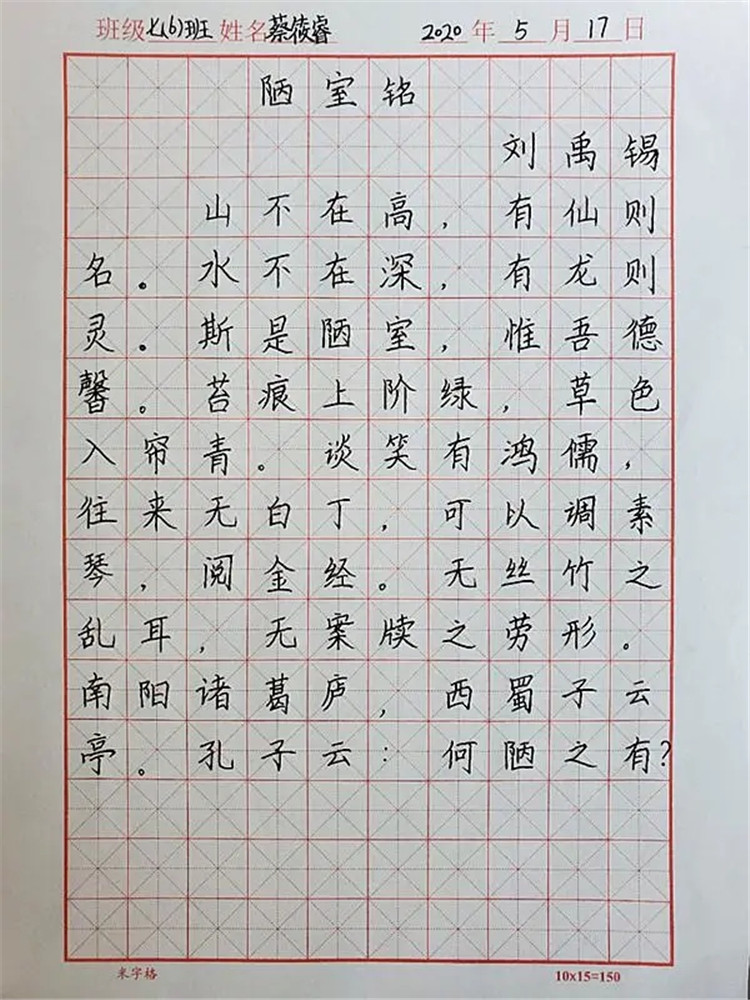 班级七(6)班 姓名蔡筱睿 2020年5月17日
陋室铭
刘禹锡
山不在高,有仙则
名。水不在深,有龙则
灵。斯是陋室,惟吾德
馨。苔痕上阶绿,草色
入帘青。谈笑有鸿儒,
往来无白丁,可以调素
琴,阅金经。无丝竹之
乱耳,无案牍之劳形。
南阳诸葛庐,西蜀子云
亭。孔子云:何陋之有?
米字格 10x15=150